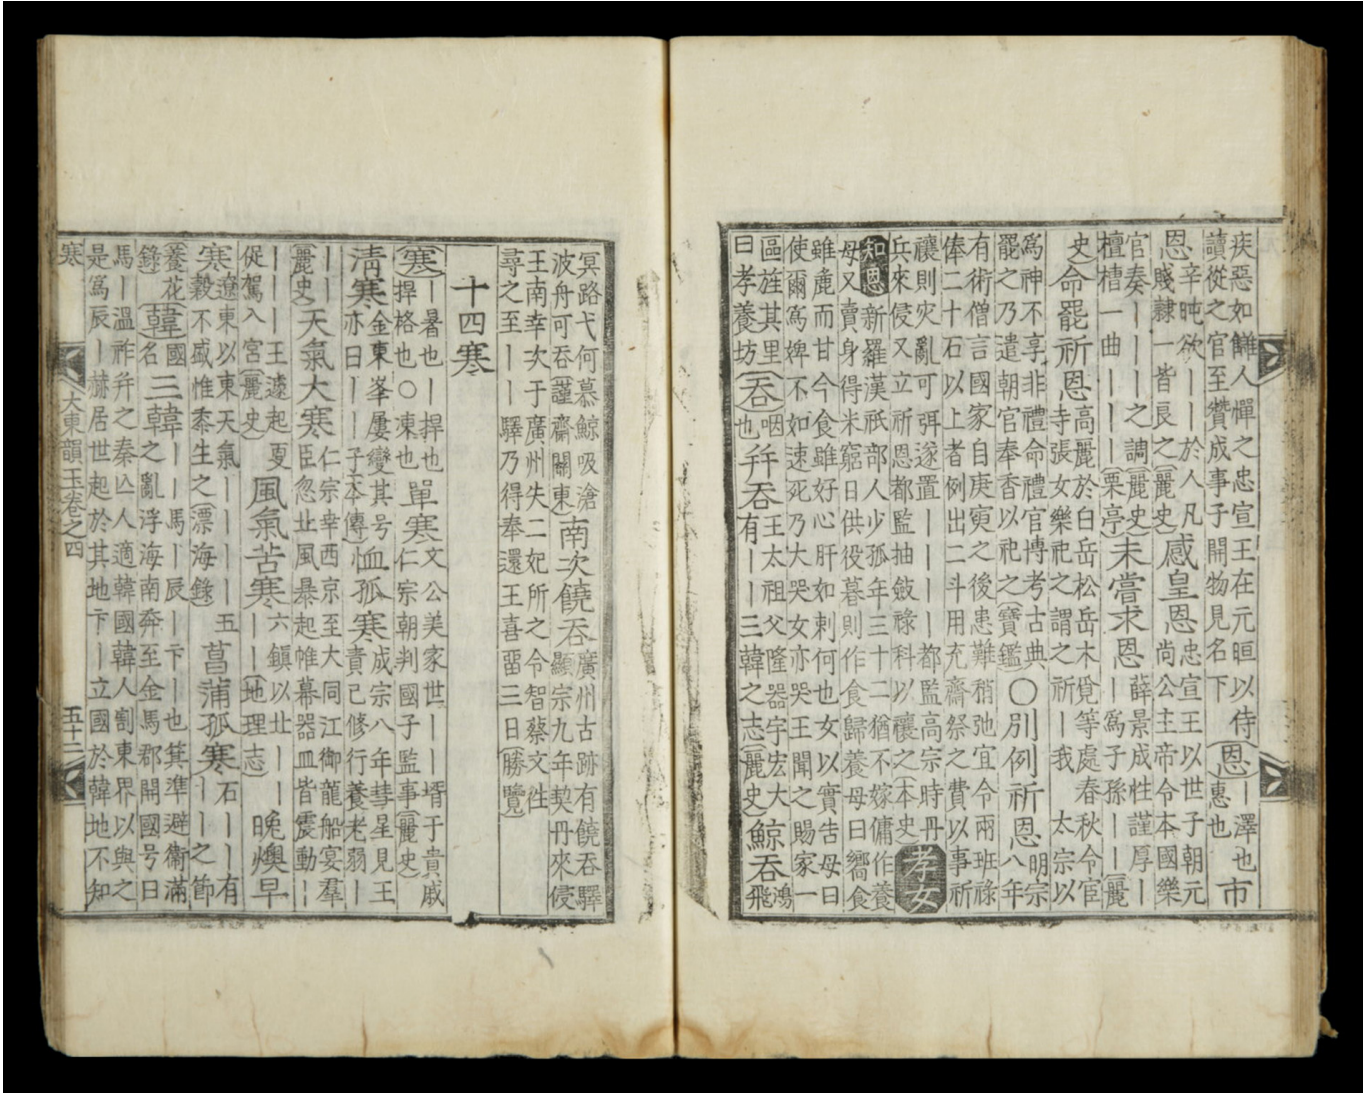 疾惡如讎人憚之忠宣王在元晅以侍讀從之官至贊成事子開物見名下(恩)｜澤也惠也市
恩辛旽欲｜｜於人凡賤隷一皆良之(麗史)感皇恩忠宣王以世子朝元尚公主帝令本國樂
官奏｜｜｜之調(麗史)檀檀一曲｜｜｜(栗亭)未嘗求恩薛景成性謹厚｜｜｜爲子孫｜｜(麗
史)命罷祈恩高麗於白岳松岳木覓等處春秋令宦寺張女樂祀之謂之祈｜我 太宗以
爲神不享非禮命禮官博考古典罷之乃遣朝官奉香以祀之(寶鑑)〇別例祈恩明宗八年
有術僧言國家自庚寅之後患難稍弛宜令兩班祿俸二十石以上者例出二斗用充齋祭之費以事祈
禳則灾亂可弭遂置｜｜｜｜都監高宗時丹兵來侵又立祈恩都監抽斂祿科以禳之(本史)孝女
知恩新羅漢祇部人少孤年三十二猶不嫁傭作養母又賣身得米窮日供役暮則作食歸養母曰嚮食
雖麁而甘今食雖好心肝如刺何也女以實告母曰使爾爲婢不如速死乃大哭女亦哭王聞之賜家一
區旌其里曰孝養坊(吞)咽也幷吞王太祖父隆器宇宏大有｜｜三韓之志(麗史)鯨吞鴻飛
冥路弋何慕鯨吸滄波舟可吞(謹齋關東)南次饒吞廣州古跡有饒吞驛顯宗九年契丹來侵
王南幸次于廣州失二妃所之令智蔡文往尋之至｜｜驛乃得奉還王喜畱三日(勝覽)
十四寒
(寒)｜暑也｜捍也捍格也〇凍也單寒文公美家世｜｜壻于貴戚仁宗朝判國子監事(麗史)
清寒金東峯屢變其号亦曰｜｜子(本傳)恤孤寒成宗八年彗星見王責已修行養老弱｜
｜｜(麗史)天氣大寒仁宗幸西京至大同江御龍船宴羣臣忽北風暴起帷幕器皿皆震動｜
｜｜｜王遽起夏促駕入宮(麗史)風氣苦寒六鎮以北｜｜｜｜(地理志)晚燠早
寒遼東以東天氣｜｜｜｜五穀不盛惟黍生之(漂海錄)菖蒲孤寒石｜｜有｜｜之節
(養花錄)(韓)國名三韓｜馬｜辰｜卞｜也箕準避衛滿之亂浮海南奔至金馬郡開國号曰
馬｜溫祚幷之秦亡人適韓國韓人割東界以與之是爲辰｜赫居世起於其地卞｜立國於韓地不知
寒
大東韻玉卷之四 五十二